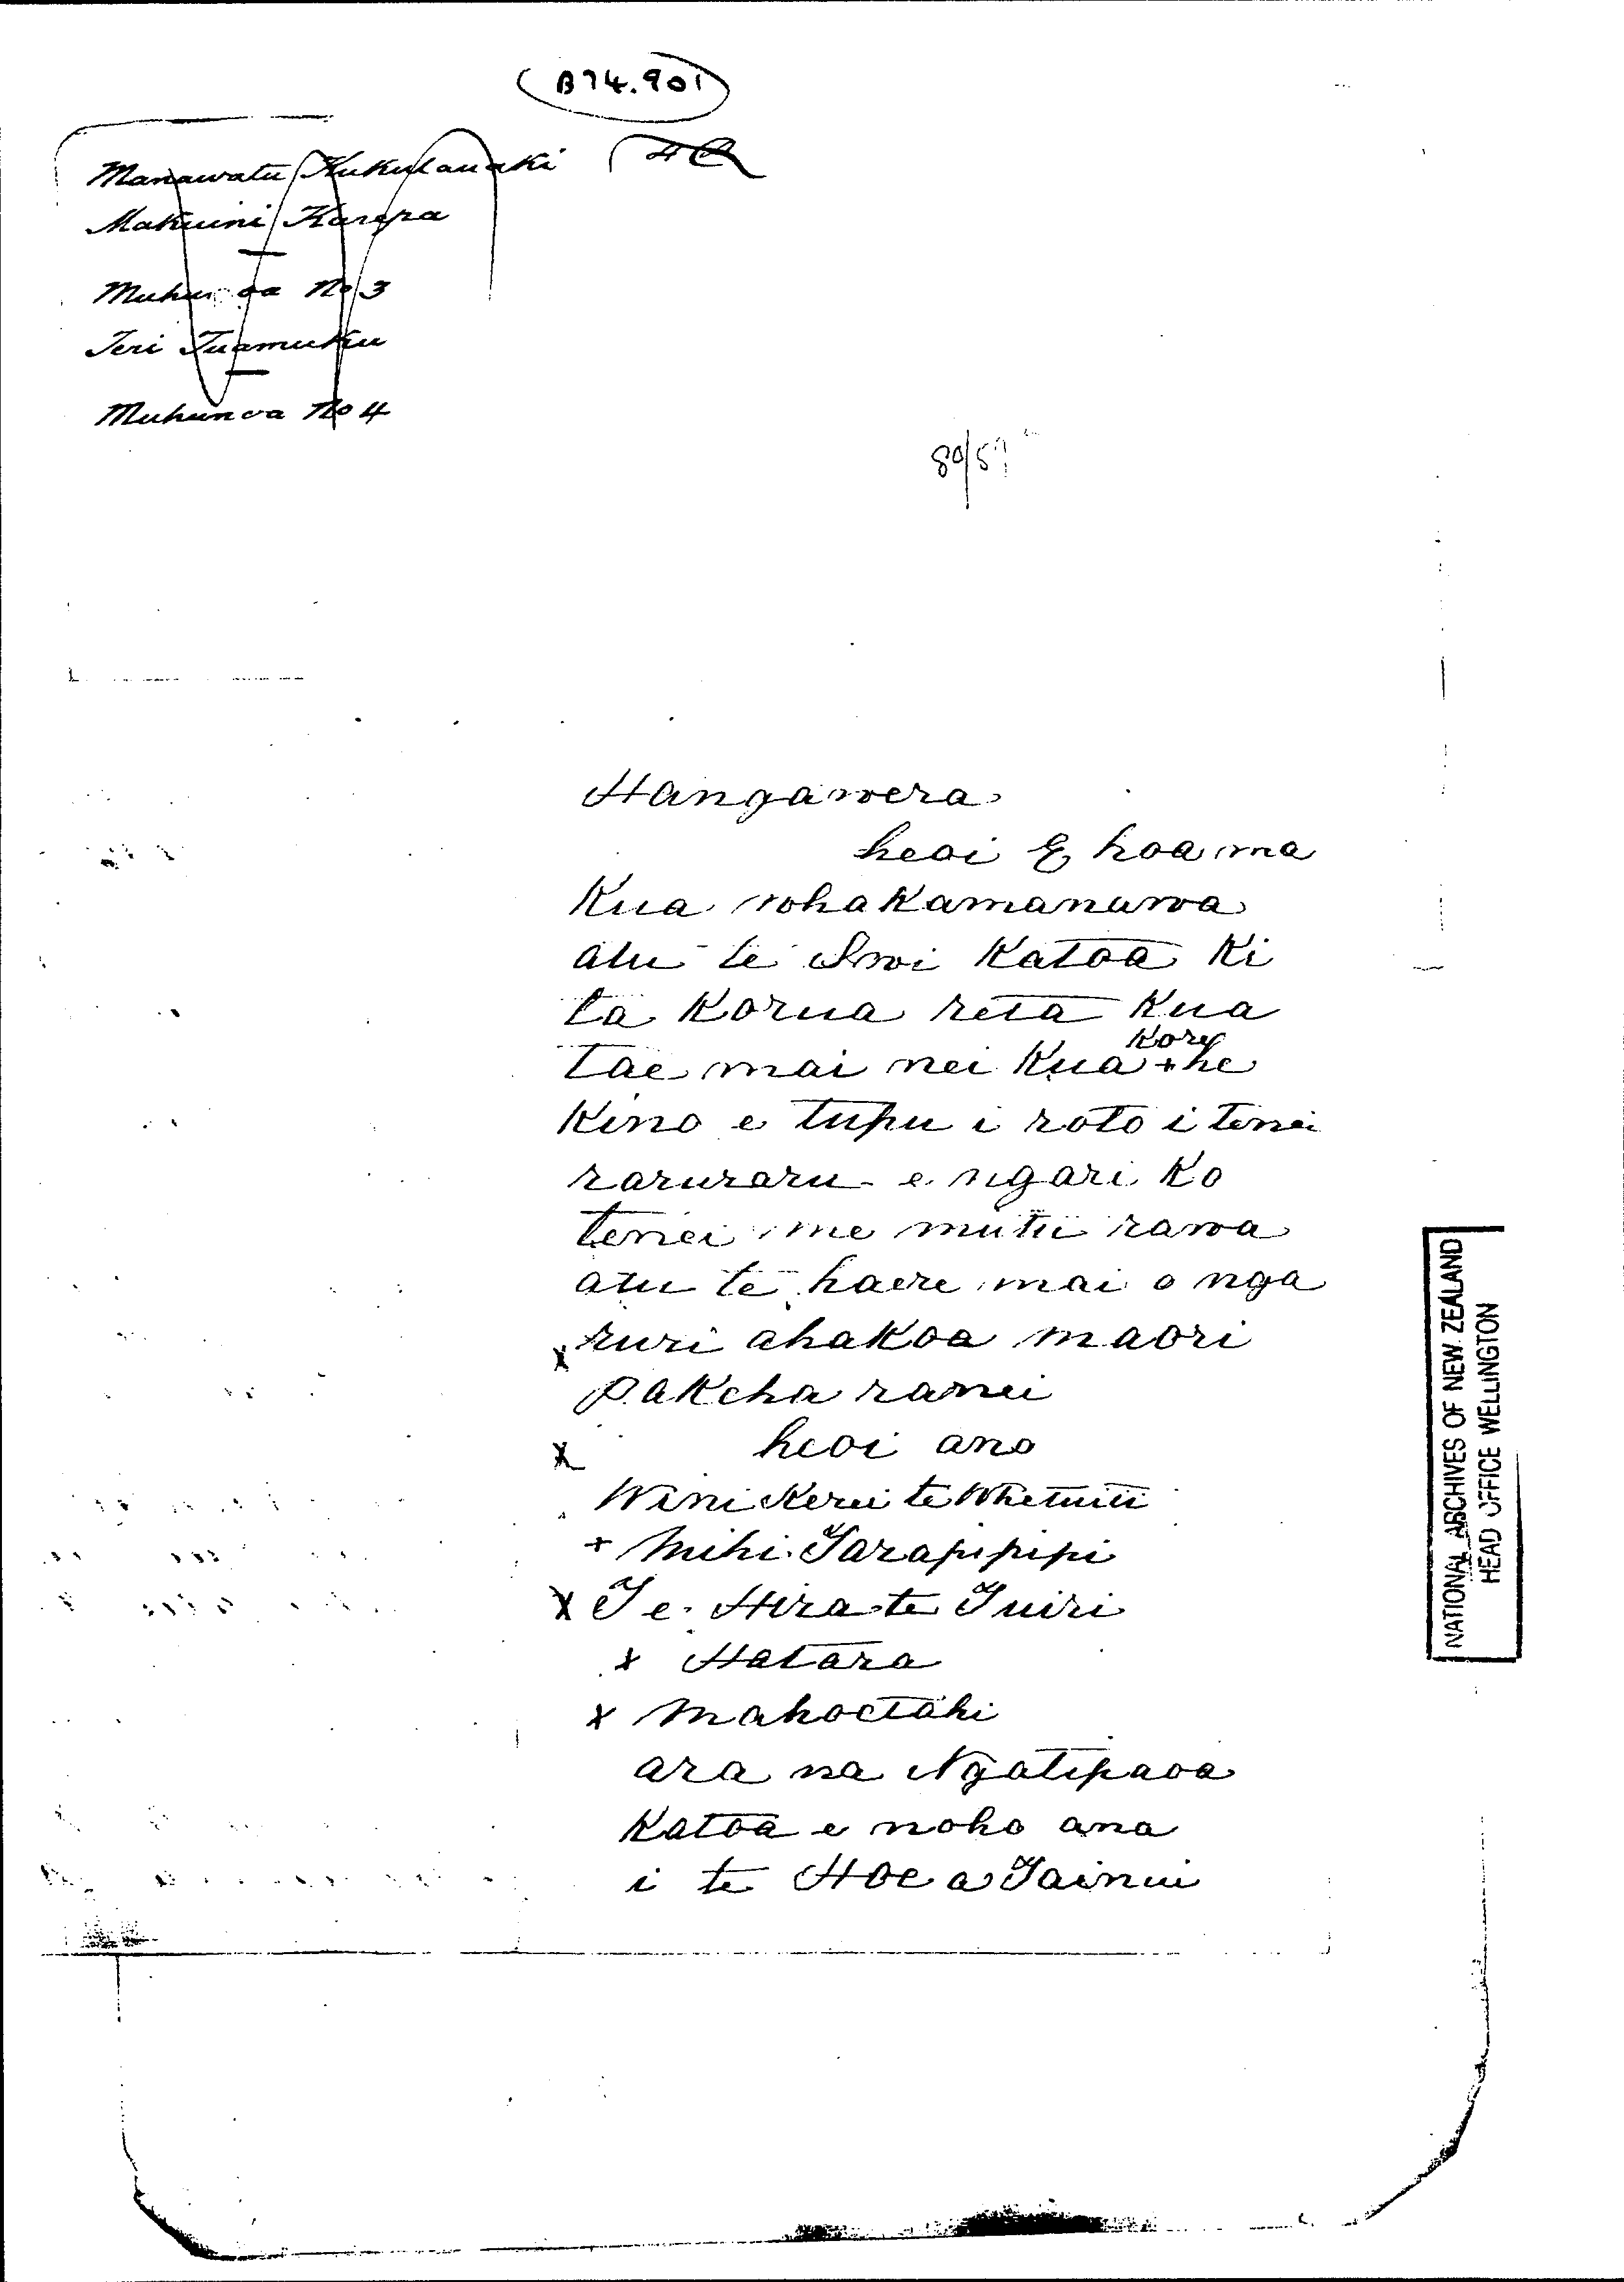 B74.901
Manawatu Kukutauaki 4C
Makuini Karepa
Muhunoa No 3
Teri Tuamuku
Muhunoa No 4
80/5
Hangawera
heoi E hoa ma
Kua whakamanuwa
atu te Iwi Katoa Ki
ta Korua reta Kua
Kore
tae mai nei Kua + he
Kino e tupu i roto i tenei
raruraru - e ngari Ko
tenei me mutu rawa
atu te haere mai o nga
x ruri ahakoa maori
pakeha ranei
x heoi ano
Wini Kerei te Whetuiti
+ Mihi Tarapipipi
x Te Hira te Tuiri
x Hatara
x Mahoetahi
ara na Ngatipaoa
Katoa e noho ana
i te Hoe a Tainui
NATIONAL ARCHIVES OF NEW ZEALAND
HEAD OFFICE WELLINGTON